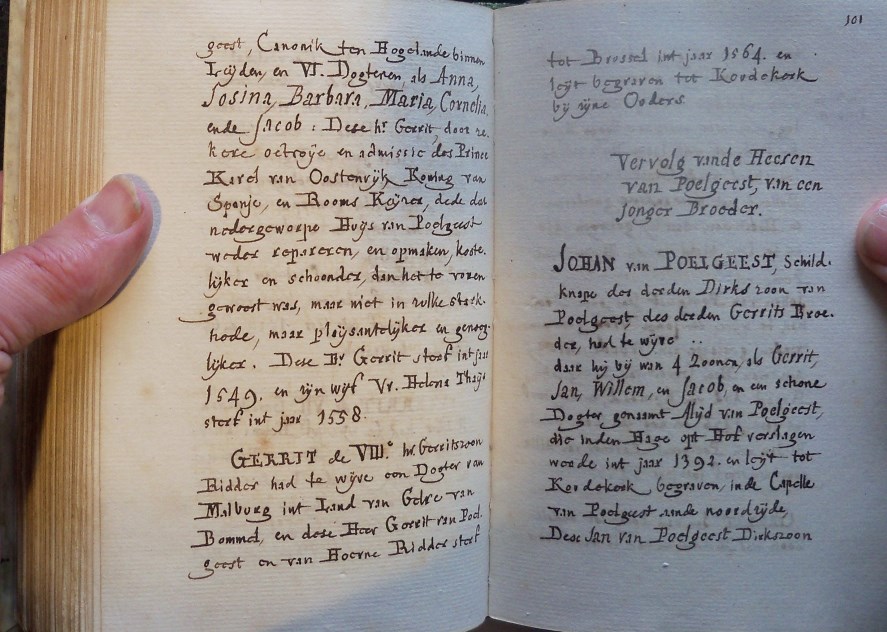 geest, Canonik ten Hogelande binnen
Leijden, en VI. Dogteren, als Anna,
Josina, Barbara, Maria, Cornelia,
ende Jacob: Dese hr. Gerrit, door ze-
kere octroije en admissie des Prince
Karel van Oostenrijk Koning van
Spanje, en Rooms Keijser, dede dat
nedergeworpe Huijs van Poelgeest
weder repareren, en opmaken, koste-
lijker en schoonder, dan het te voren
geweest was, maar niet in zulke sterk-
hede, maar plaijsantelijker en genoeg-
lijker. Dese Hr. Gerrit sterf int jaar
1549. en zijn wijf Vr. Helena Thaijs
sterf int jaar 1558.
GERRIT de VIII.e hr. Gerritszoon
Ridder had te wijve een Dogter van
Malburg int Land van Gelre van
Bommel, en dese Heer Gerrit van Poel-
geest en van Hoerne Ridder sterf
101
tot Brussel int jaar 1564. en
leijt begraven tot Koudekerk
bij zijne Ouders
Vervolg vande Heeren
van Poelgeest, van een
Jonger Broeder.
JOHAN van POELGEEST, Schild-
knape des derden Dirks zoon van
Poelgeest, des derden Gerrits Broe-
der, had te wijve ..
daar hij bij wan 4 Zoonen, als Gerrit,
Jan, Willem, en Jacob, en een schone
Dogter genaamt Alijd van Poelgeest,
die inden Hage opt Hof verslagen
werde int jaar 1392. en leijt tot
Koudekerk begraven, in de Capelle
van Poelgeest aande noordzijde,
Dese Jan van Poelgeest Dirkszoon